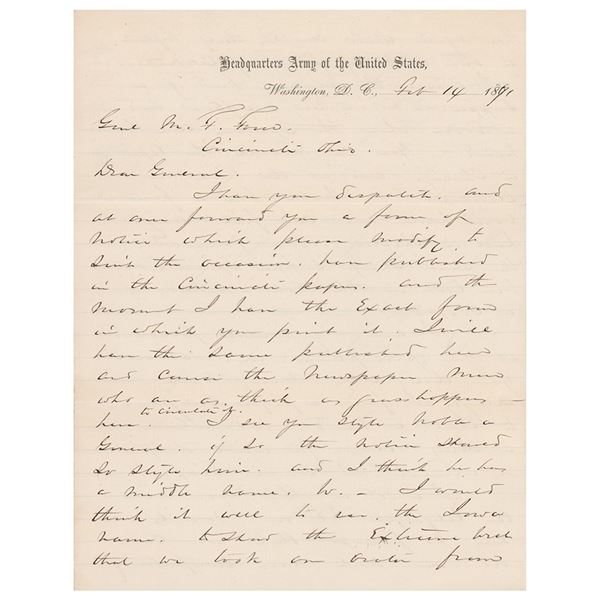 Headquarters Army of the United States,
Washington, D. C., Feb 14 1871
Genl M. F. Force.
Cincinnati Ohio.
Dear General.
I have your despatch. and
at once forward you a form of
Notice which please modify to
suit the occasion. have published
in the Cincinnati papers. and the
moment I have the Exact form
in which you print it. I will
have the same published here
and cause the Newspaper men
who are as thick as grasshoppers
here. to circulate it. I see you style Noble a
General. if so the Notice should
so style him. and I think he has
a middle name. W. - I would
think it well to use the Iowa
name. to show the Extreme
that we took an orator from